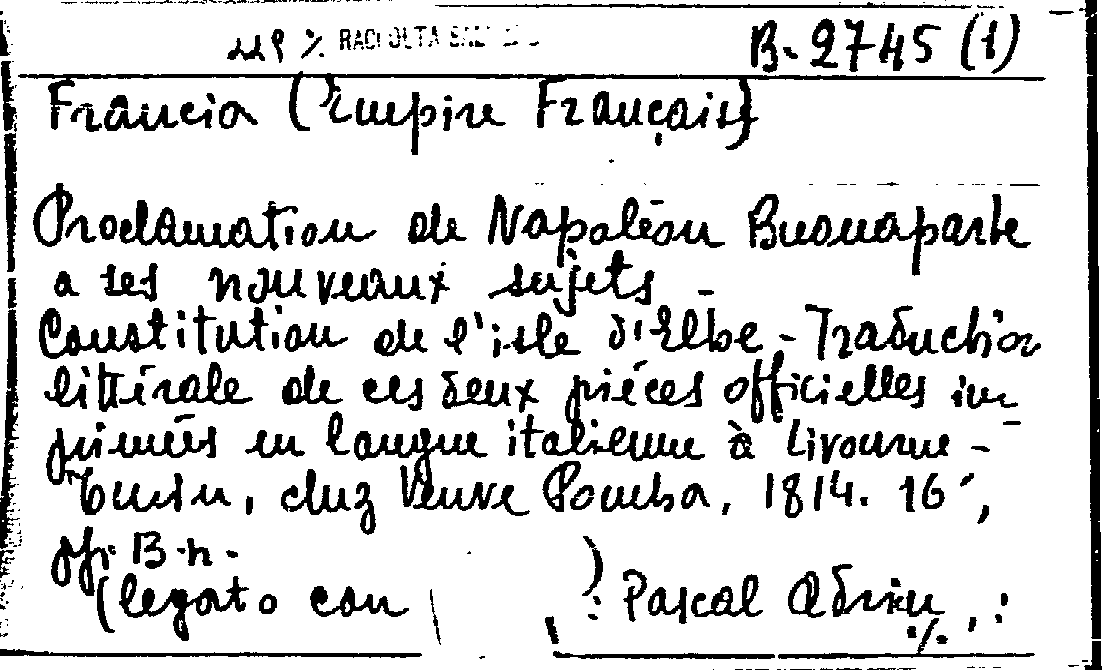 229 % RACCOLTA B-2745 (1)
Francia (Empire Français)
Proclamation de Napoléon Buonaparte
a ses nouveaux sujets -
Constitution de l'isle d'Elbe - Traduction
littérale de ces deux piéces officielles im-
primées en langue italienne à Livourne -
Turin, chez Veuve Pomba, 1814. 16°,
pp. 13 n.
(legato con ) : Pascal Adrien, :
%.